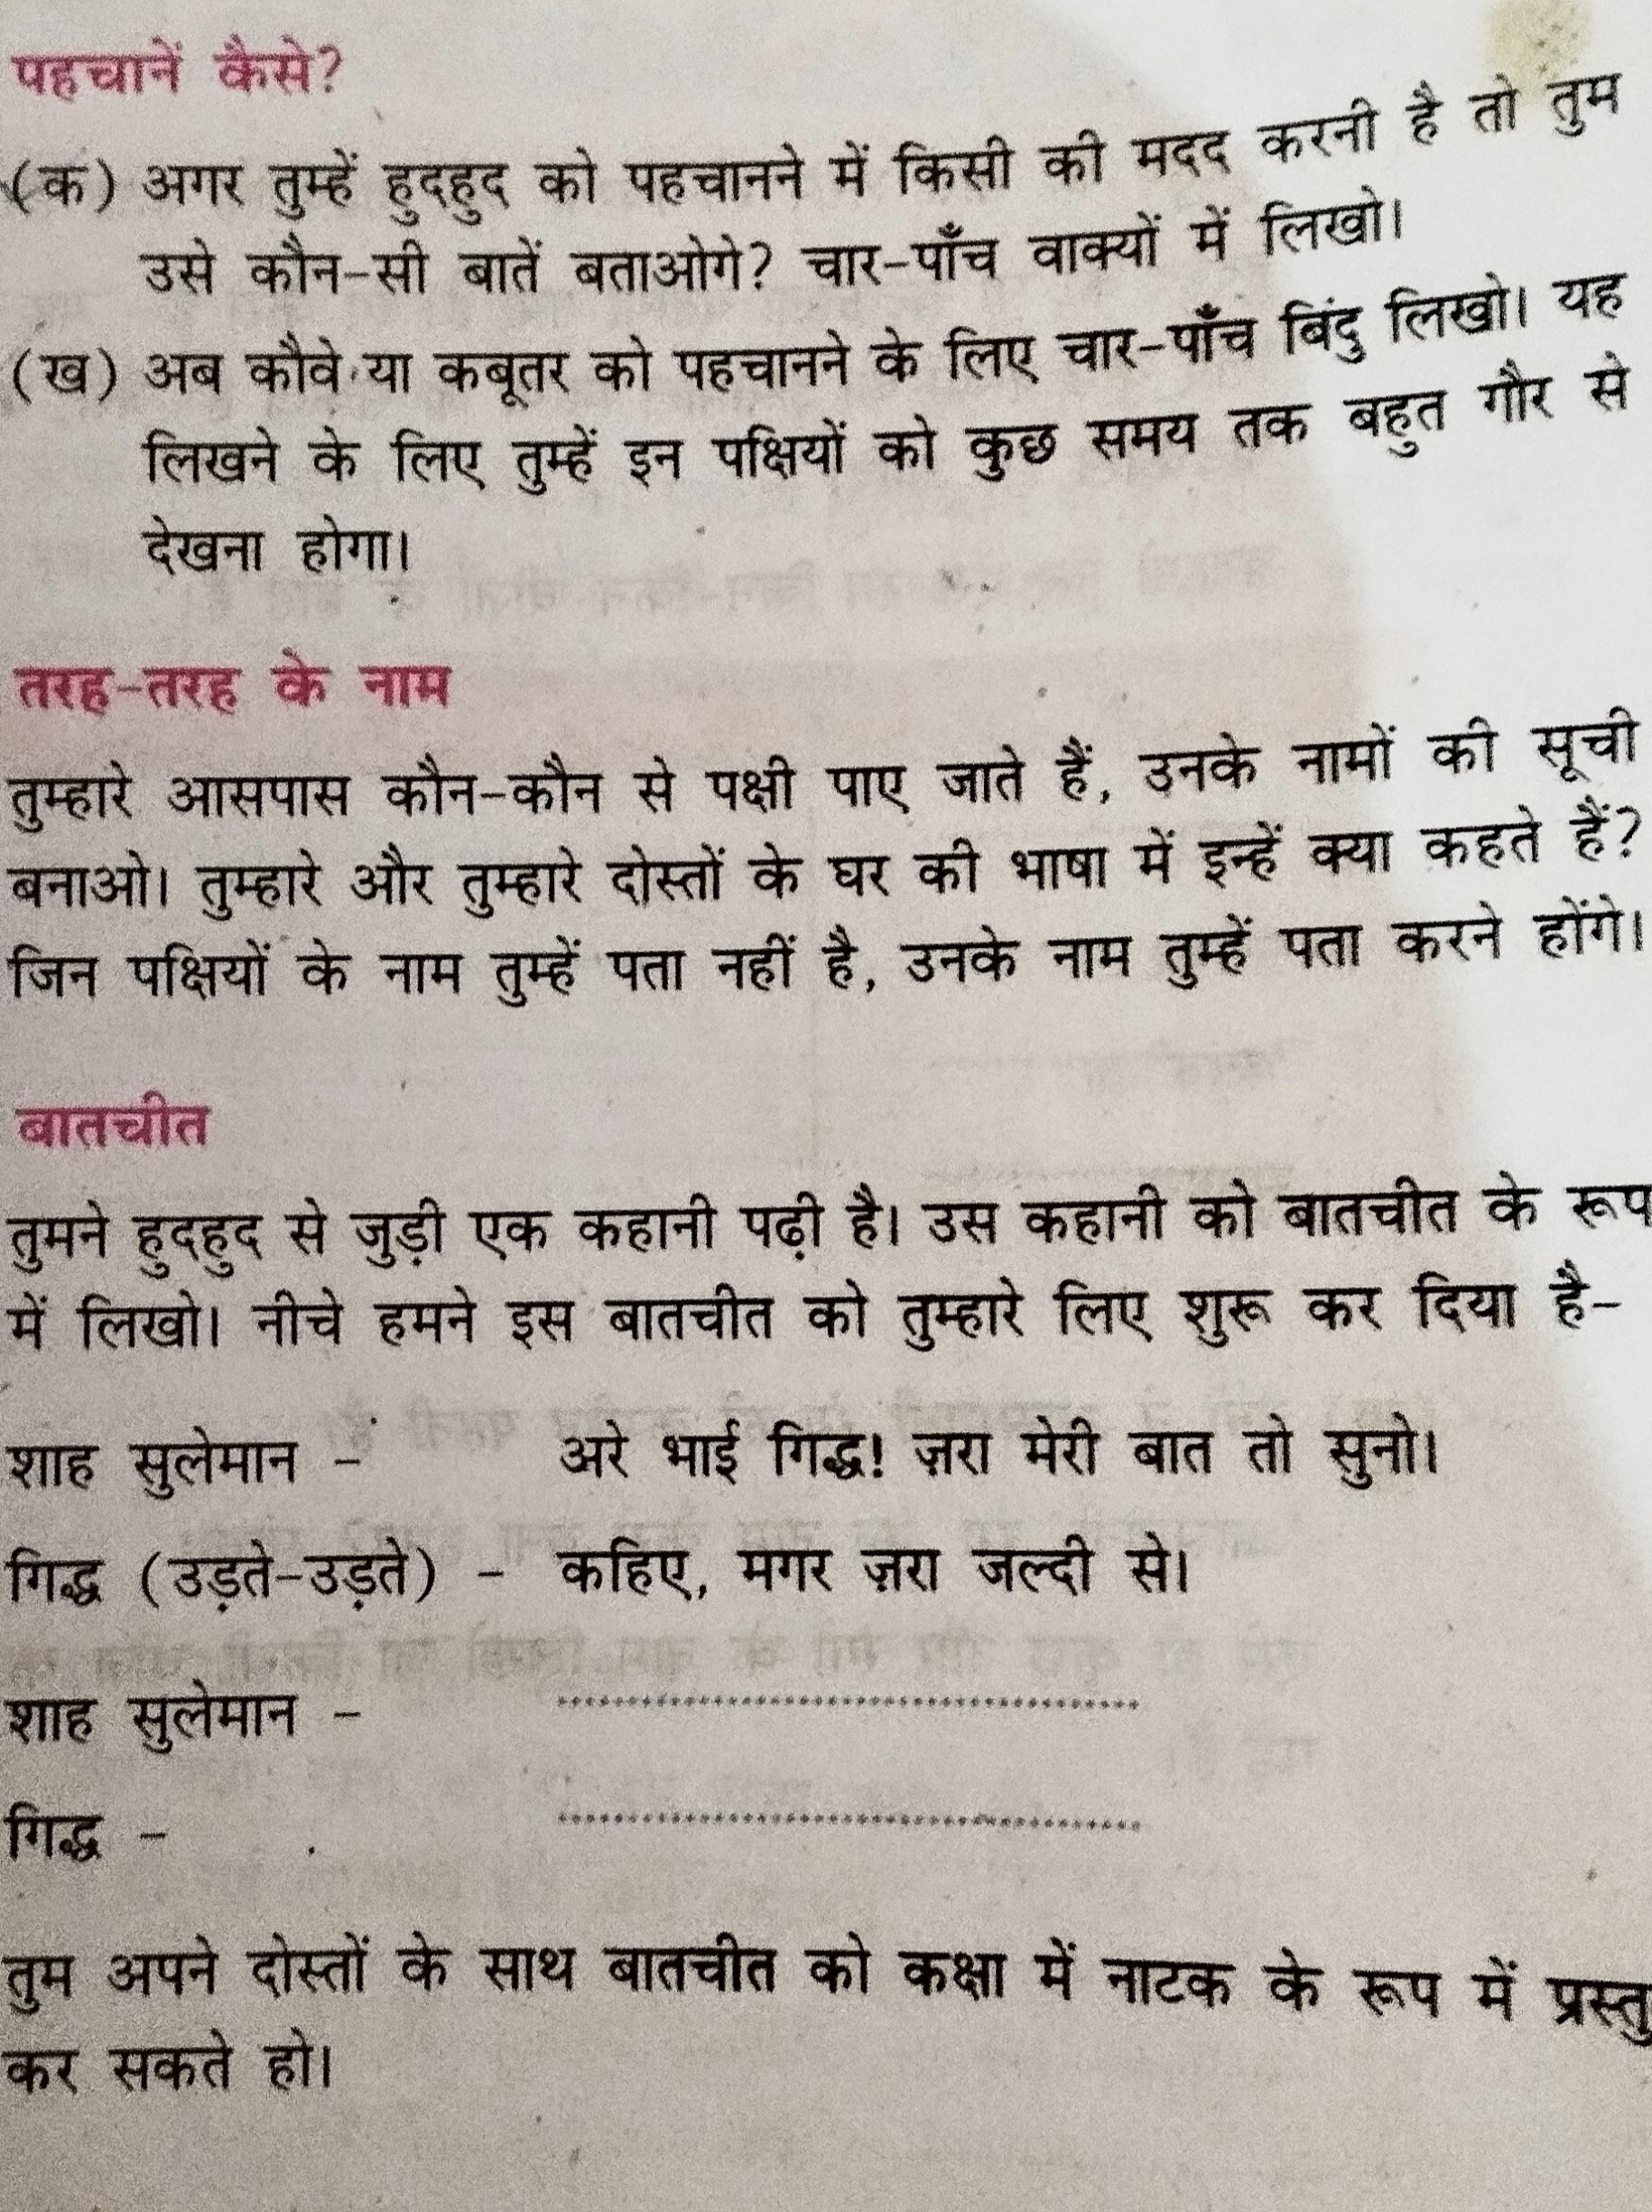 पहचानें कैसे?
(क) अगर तुम्हें हुदहुद को पहचानने में किसी की मदद करनी है तो तुम
उसे कौन-सी बातें बताओगे? चार-पाँच वाक्यों में लिखो।
(ख) अब कौवे या कबूतर को पहचानने के लिए चार-पाँच बिंदु लिखो। यह
लिखने के लिए तुम्हें इन पक्षियों को कुछ समय तक बहुत गौर से
देखना होगा।
तरह-तरह के नाम
तुम्हारे आसपास कौन-कौन से पक्षी पाए जाते हैं, उनके नामों की सूची
बनाओ। तुम्हारे और तुम्हारे दोस्तों के घर की भाषा में इन्हें क्या कहते हैं?
जिन पक्षियों के नाम तुम्हें पता नहीं है, उनके नाम तुम्हें पता करने होंगे।
बातचीत
तुमने हुदहुद से जुड़ी एक कहानी पढ़ी है। उस कहानी को बातचीत के रूप
में लिखो। नीचे हमने इस बातचीत को तुम्हारे लिए शुरू कर दिया है-
शाह सुलेमान - अरे भाई गिद्ध! ज़रा मेरी बात तो सुनो।
गिद्ध (उड़ते-उड़ते) - कहिए, मगर ज़रा जल्दी से।
शाह सुलेमान - ........................................
गिद्ध - ........................................
तुम अपने दोस्तों के साथ बातचीत को कक्षा में नाटक के रूप में प्रस्तु
कर सकते हो।